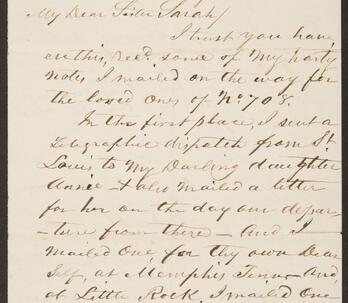 My Dear Sister Sarah/
I trust you have,
ere this, recd. some of my hasty
notes I mailed on the way for
the loved ones of No 708.
In the first place, I sent a
Telegraphic dispatch from St.
Louis to My Darling daughter
Annie & also mailed a letter
for her on the day our depar-
-ture from there - And I
mailed One for thy own Dear
Self, at Memphis Tenn - And
at Little Rock, I mailed One